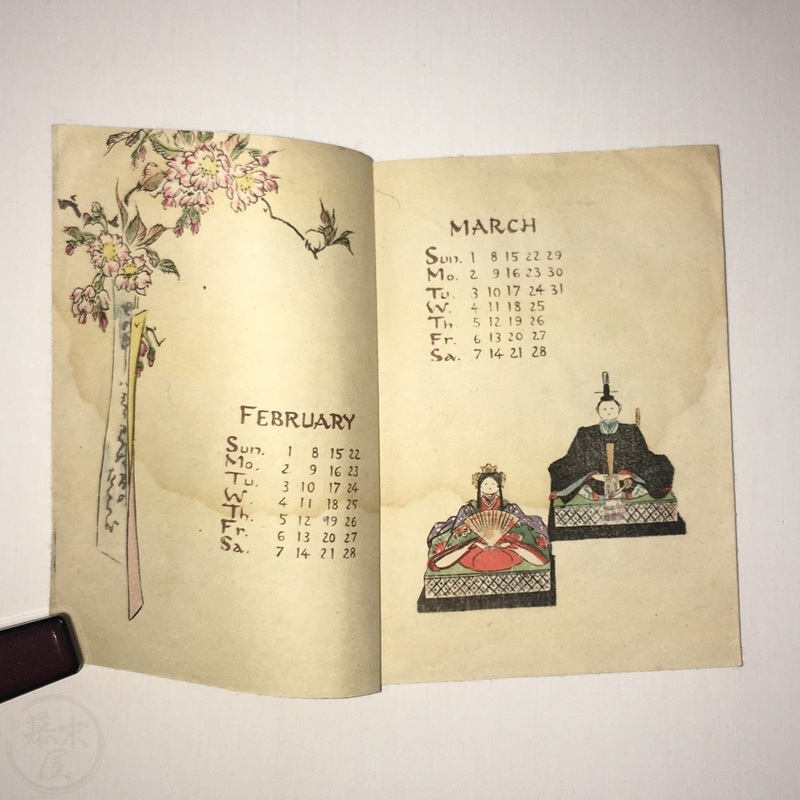 FEBRUARY
Sun. 1 8 15 22
Mo. 2 9 16 23
Tu. 3 10 17 24
W. 4 11 18 25
Th. 5 12 19 26
Fr. 6 13 20 27
Sa. 7 14 21 28
MARCH
Sun. 1 8 15 22 29
Mo. 2 9 16 23 30
Tu. 3 10 17 24 31
W. 4 11 18 25
Th. 5 12 19 26
Fr. 6 13 20 27
Sa. 7 14 21 28
幕末屋